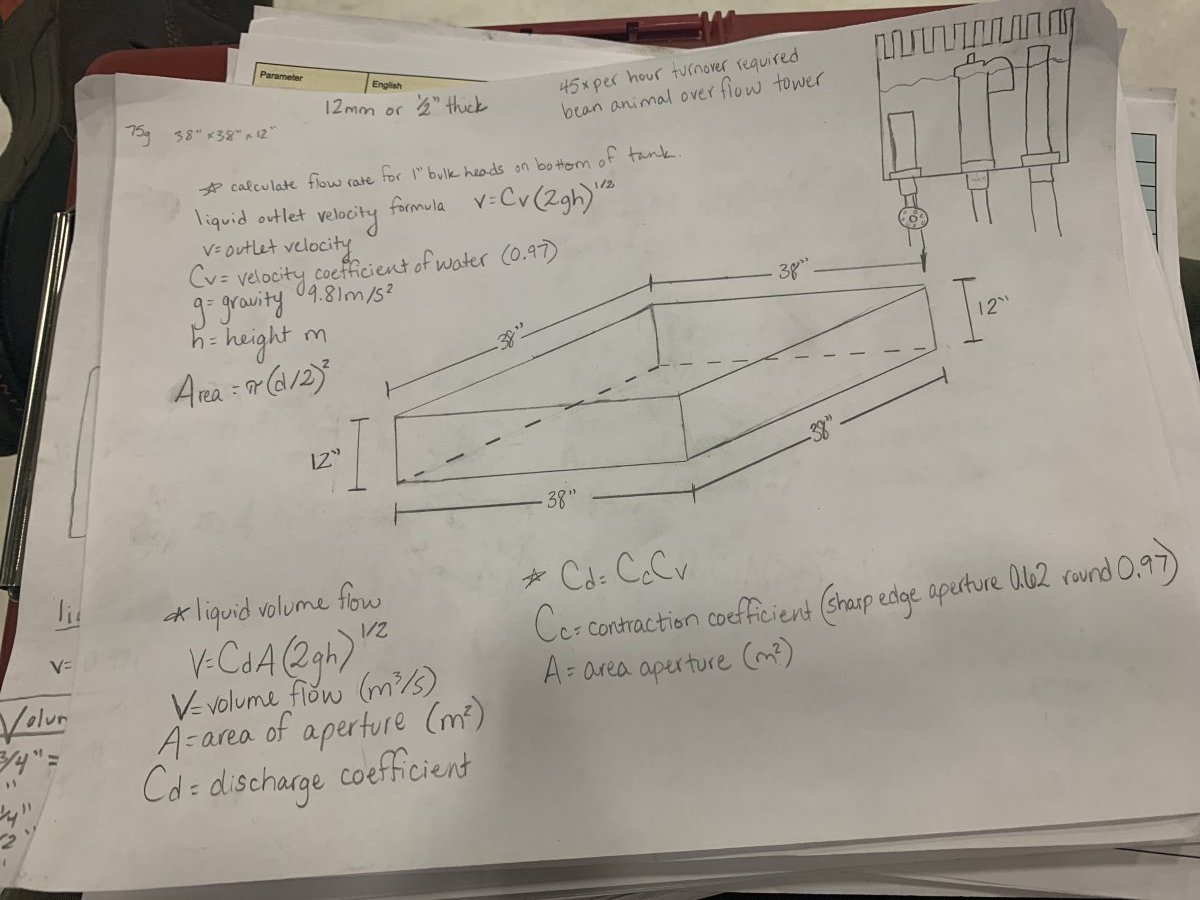 Parameter
English
12mm or 1/2" thick
45x per hour turnover required
bean animal overflow tower
75g 38" x 38" x 12"
☆ calculate flow rate for 1" bulk heads on bottom of tank.
liquid outlet velocity formula v=Cv(2gh)^1/2
v=outlet velocity
Cv= velocity coefficient of water (0.97)
g= gravity 9.81m/s²
h= height m
Area = π(d/2)²
38"
38"
12"
12"
38"
38"
☆ liquid volume flow
V=CdA(2gh)^1/2
V=volume flow (m³/s)
A=area of aperture (m²)
Cd = discharge coefficient
☆ Cd= CcCv
Cc= contraction coefficient (sharp edge aperture 0.62 round 0.97)
A= area aperture (m²)
v=
3/4"=